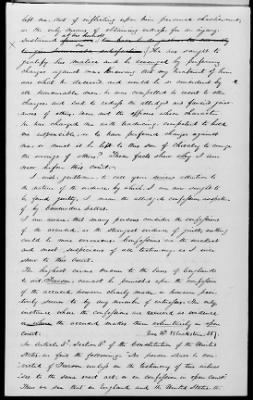 left me, that of inflicting upon him personal chastisement,
or the only means of obtaining redress for an injury.
sustained at his hands He has sought to
gratify his malice and be revenged by preferring
charges against me. Knowing that my treatment of him
was what he deserved and would be so considered by
all honourable men, he was compelled to resort to other
charges and but to redress the alleged and fancied griev-
ances of others, men and the officers whose character
he has charged me with traducing, complained to hold
me responsible, or to have preferred charges against
me, or must it be left to this son of chivalry to avenge
the wrongs of others? These facts show why I am
now before this court.
I wish, gentlemen, to call your serious attention to
the nature of the evidence by which I am now sought to
be found guilty, I mean the alledged confessions
of by
I am aware that many persons consider the confessions
of the accused, as the strongest evidence of guilt, nothing
could be more erroneous. Confessions are the weakest
and most suspicious of all testimony, as I will
show to this Court.
The highest crime known to the laws of England
to wit, Treason, cannot be proved upon the confession
of the accused however clearly made or however posi-
tively sworn to by any number of witnesses. The only
instance where the confessions are received as evidence
is where the accused makes them voluntarily in open
court. See Blackstone 357.
In Article 3rd, Section 3rd of the Constitution of the United
States, we find the following: "No person shall be con-
victed of Treason unless on the testimony of two witnes-
ses to the same overt act, or on confession in open Court."
Thus we see that in England and the United States, the